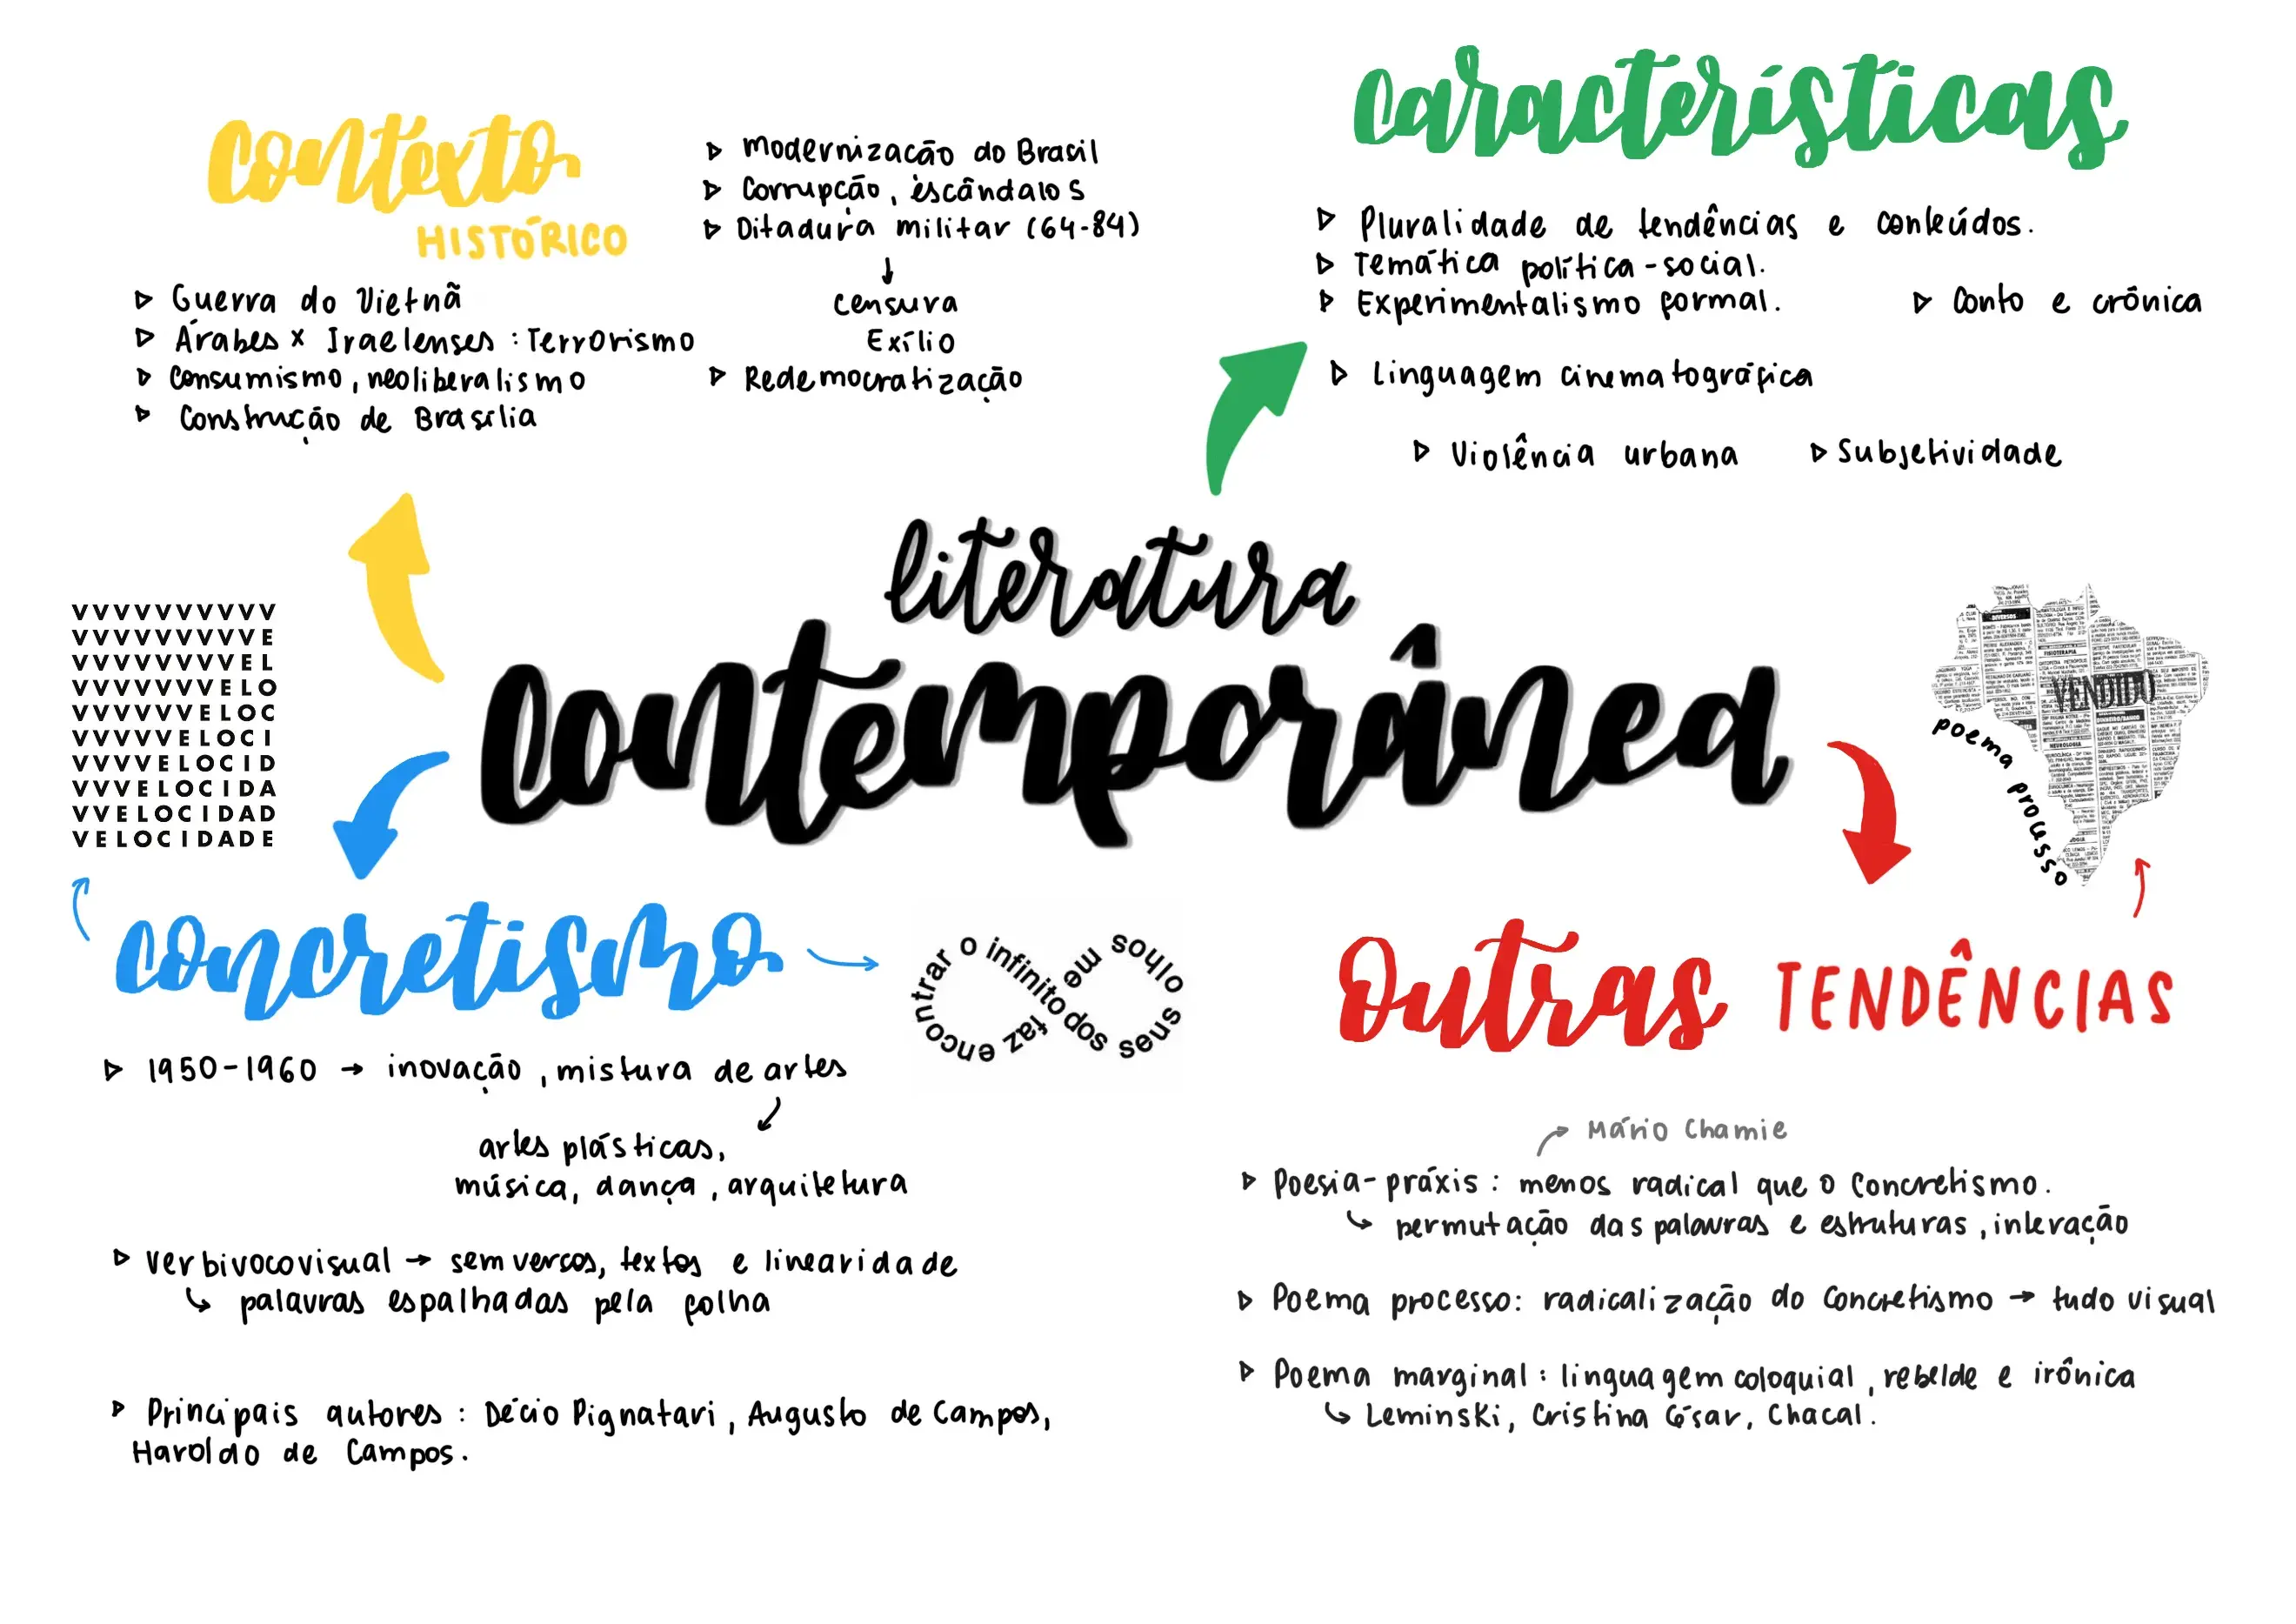 Contexto
HISTÓRICO
▷ Guerra do Vietnã
▷ Árabes x Iraelenses : Terrorismo
▷ Consumismo, neoliberalismo
▷ Construção de Brasília
▷ Modernização do Brasil
▷ Corrupção, escândalos
▷ Ditadura militar (64-84)
↓
Censura
Exílio
▷ Redemocratização
Características
▷ Pluralidade de tendências e conteúdos.
▷ Temática política-social.
▷ Experimentalismo formal.
▷ Conto e crônica
▷ Linguagem cinematográfica
▷ Violência urbana
▷ Subjetividade
literatura
Contemporânea
VVVVVVVVVV
VVVVVVVVVE
VVVVVVVVEL
VVVVVVVELO
VVVVVVELOC
VVVVVELOCI
VVVVELOCID
VVVELOCIDA
VVELOCIDAD
VELOCIDADE
VENDIDO
DIVERSOS
FISIOTERAPIA
NEUROLOGIA
poema processo
Concretismo
o infinito dos seus olhos me faz encontrar
▷ 1950-1960 → inovação, mistura de artes
artes plásticas,
música, dança, arquitetura
▷ Verbivocovisual → sem versos, textos e linearidade
↳ palavras espalhadas pela folha
▷ Principais autores : Décio Pignatari, Augusto de Campos,
Haroldo de Campos.
Outras TENDÊNCIAS
Mário Chamie
▷ Poesia-práxis : menos radical que o Concretismo.
↳ permutação das palavras e estruturas, interação
▷ Poema processo: radicalização do Concretismo → tudo visual
▷ Poema marginal : linguagem coloquial, rebelde e irônica
↳ Leminski, Cristina César, Chacal.